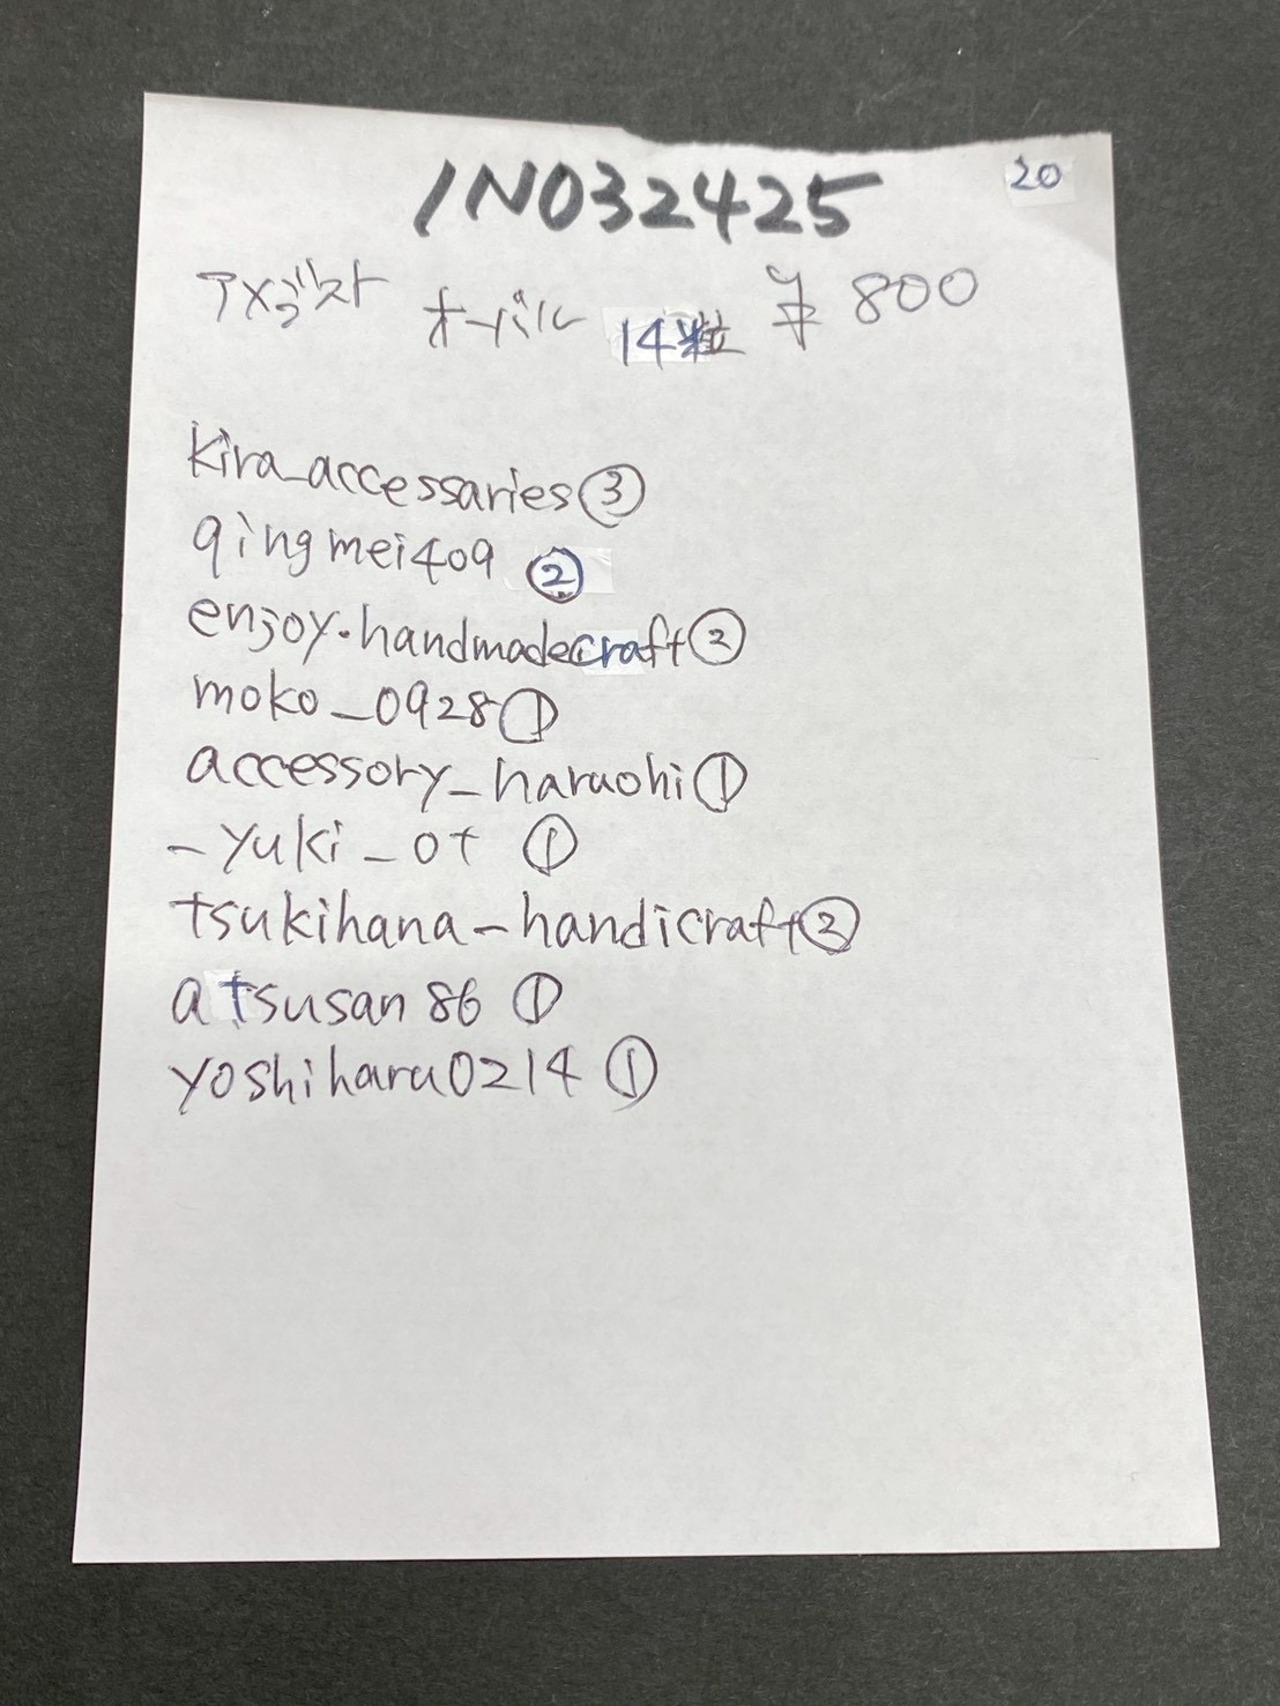 INO32425 20
アメヂスト オーバル 14粒 ¥800
kira_accessaries③
qingmei409 ②
enjoy.handmadecraft②
moko_0928①
accessory_haruohi①
_yuki_ot ①
tsukihana_handicraft②
atsusan86 ①
yoshiharu0214 ①